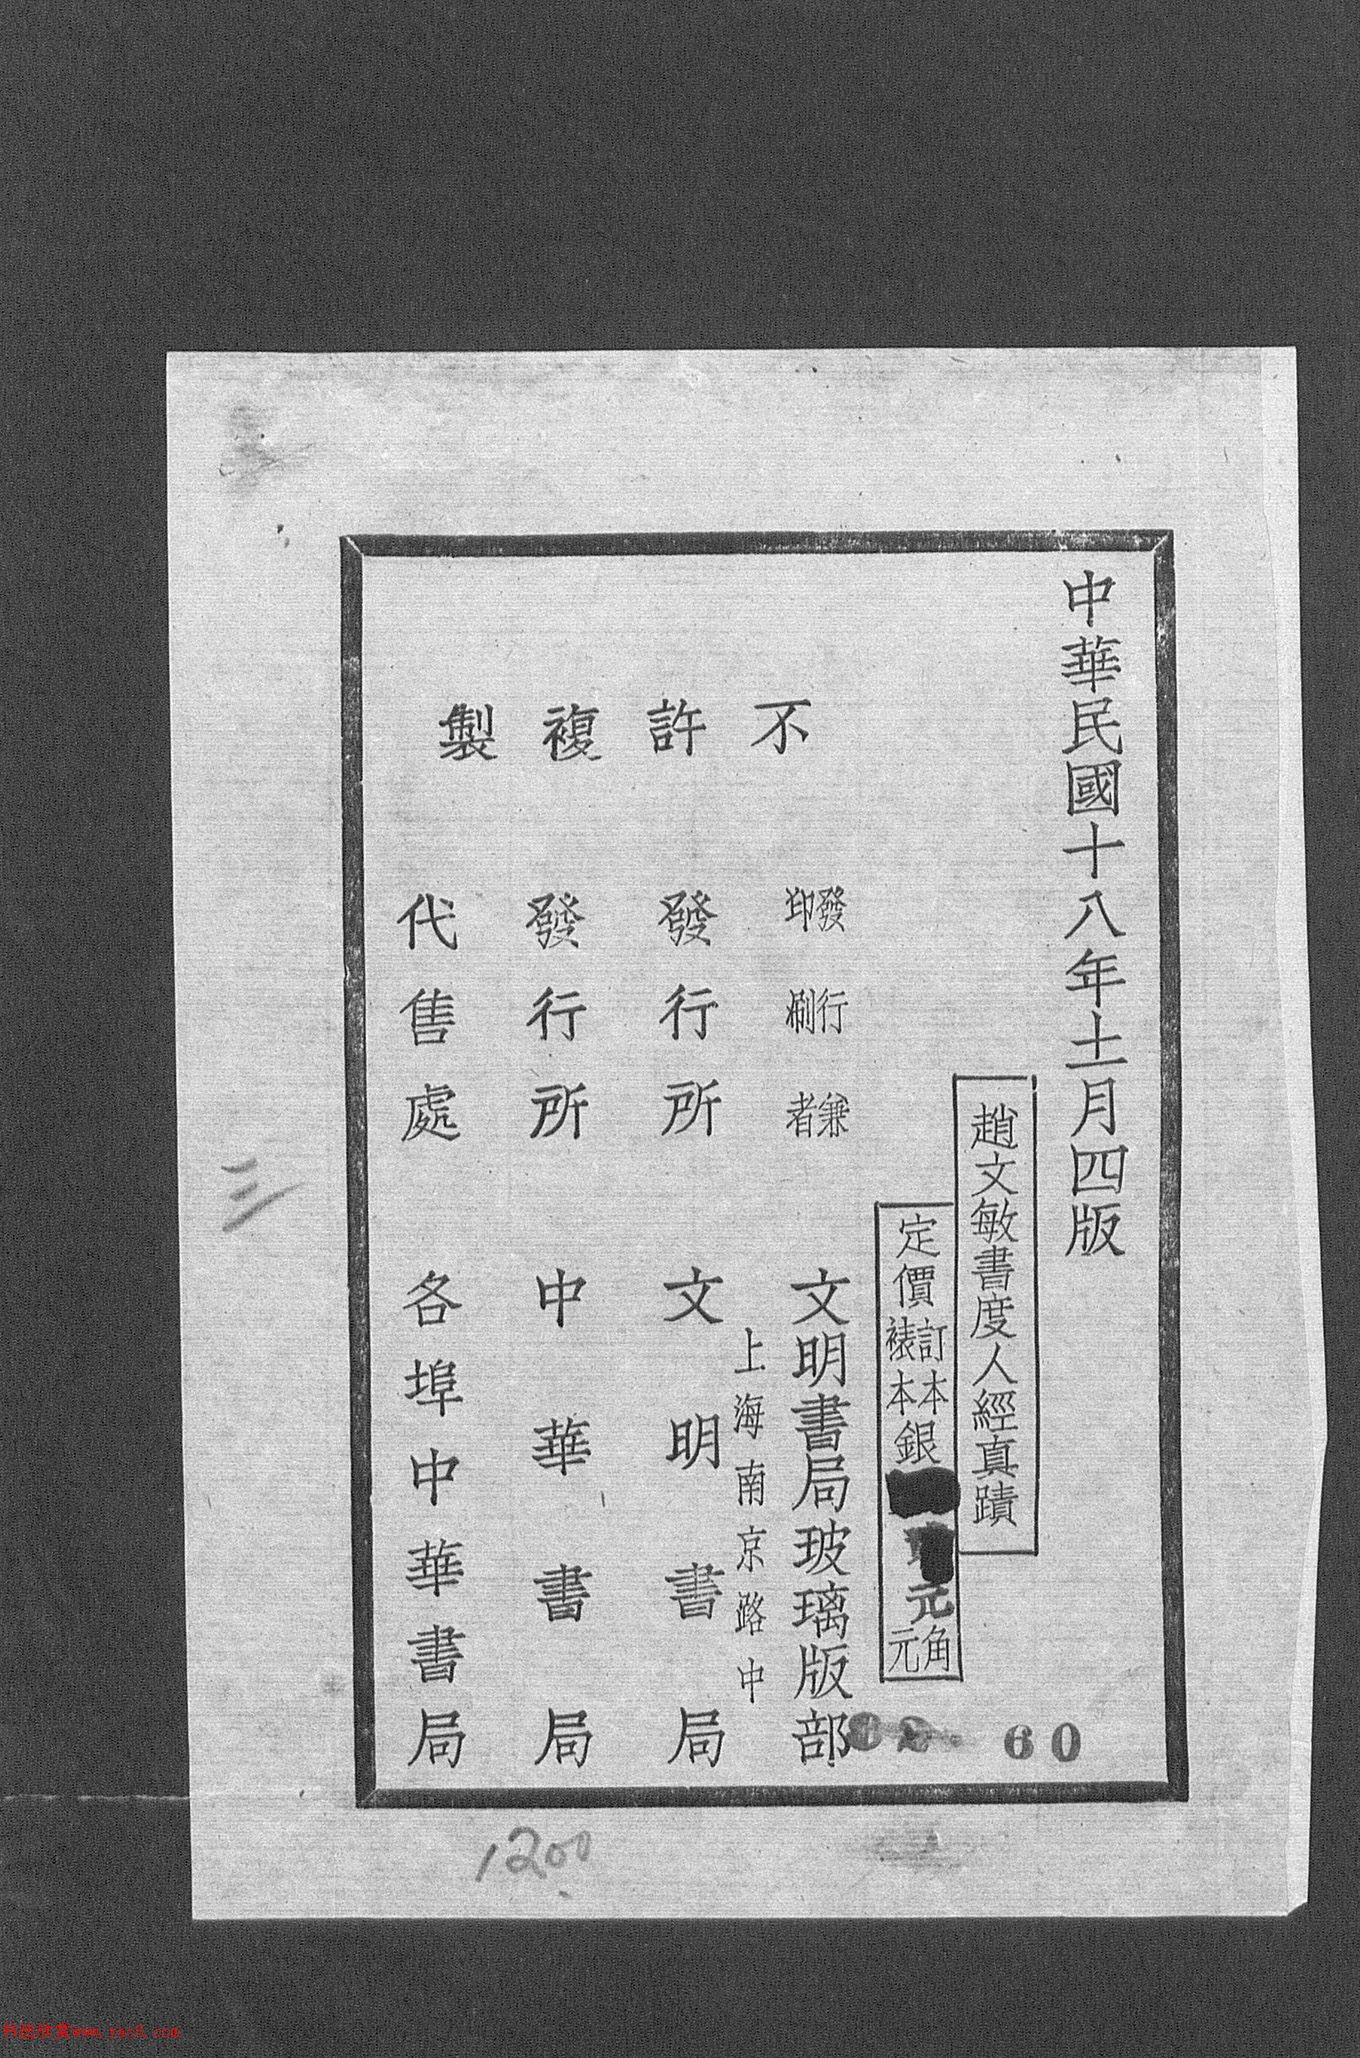 中華民國十八年十一月四版
趙文敏書度人經真蹟
定價
訂本
裱本
銀
元
角
元
60
不許複製
發行兼
印刷者
文明書局玻璃版部
上海南京路中
發行所
文明書局
發行所
中華書局
代售處
各埠中華書局
三
1200
书法欣赏www.yac8.com